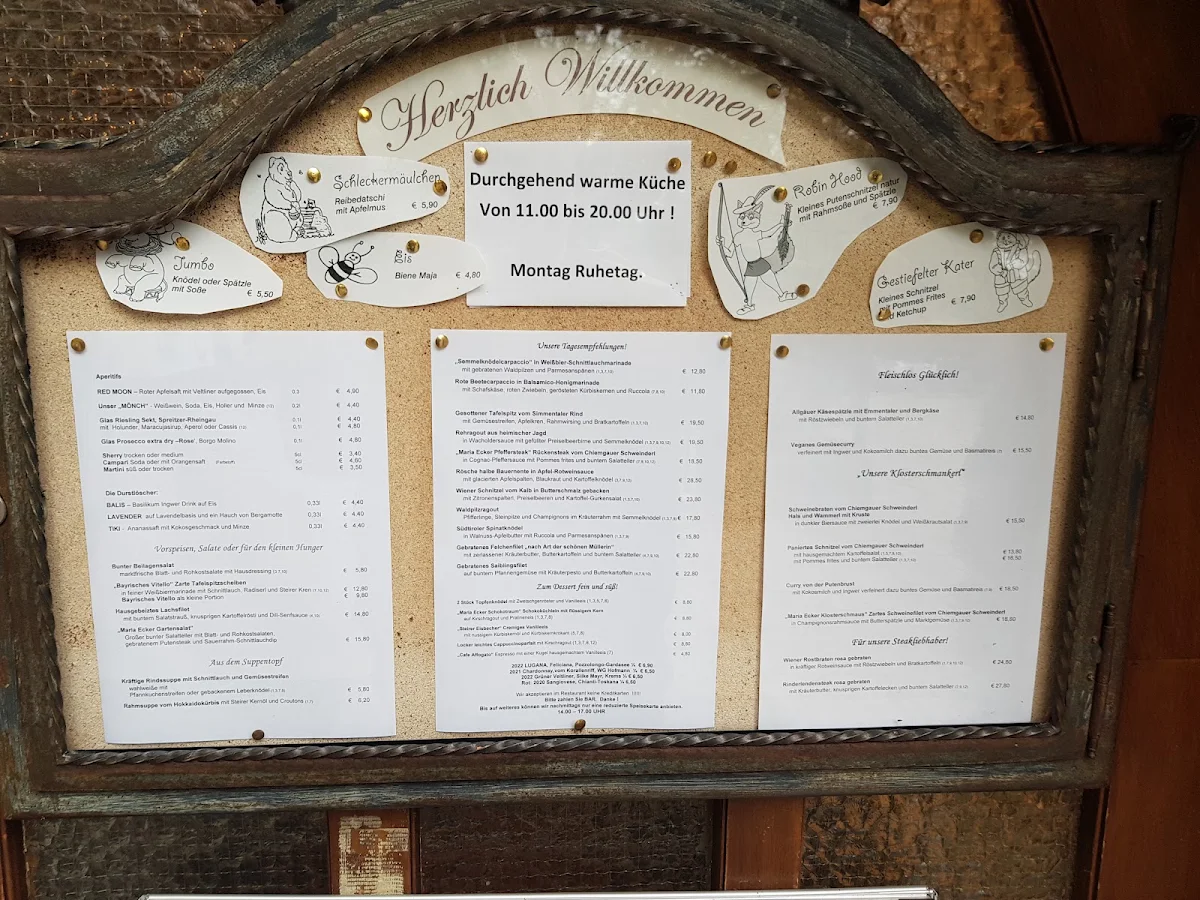 Herzlich Willkommen
Schleckermäulchen
Reibedatschi
mit Apfelmus € 5,90
Jumbo
Knödel oder Spätzle
mit Soße € 5,50
Eis
Biene Maja € 4,80
Durchgehend warme Küche
Von 11.00 bis 20.00 Uhr !
Montag Ruhetag.
Robin Hood
Kleines Putenschnitzel natur
mit Rahmsoße und Spätzle
€ 7,90
Gestiefelter Kater
Kleines Schnitzel
mit Pommes Frites
und Ketchup € 7,90
Aperitifs
RED MOON – Roter Apfelsaft mit Veltliner aufgegossen, Eis 0,3 € 4,90
Unser „MÖNCH" - Weißwein, Soda, Eis, Holler und Minze 0,2l € 4,40
Glas Riesling Sekt, Spreitzer-Rheingau 0,1l € 4,40
mit Holunder, Maracujasirup, Aperol oder Cassis 0,1l € 4,80
Glas Prosecco extra dry –Rose', Borgo Molino 0,1l € 4,80
Sherry trocken oder medium 5cl € 3,40
Campari Soda oder mit Orangensaft 5cl € 4,60
Martini süß oder trocken 5cl € 3,50
Die Durstlöscher:
BALIS – Basilikum Ingwer Drink auf Eis 0,33l € 4,40
LAVENDER auf Lavendelbasis und ein Hauch von Bergamotte 0,33l € 4,40
TIKI - Ananassaft mit Kokosgeschmack und Minze 0,33l € 4,40
Vorspeisen, Salate oder für den kleinen Hunger
Bunter Beilagensalat
marktfrische Blatt- und Rohkostsalate mit Hausdressing € 5,80
„Bayrisches Vitello" Zarte Tafelspitzscheiben
in feiner Weißbiermarinade mit Schnittlauch, Radiserl und Steirer Kren € 12,80
Bayrisches Vitello als kleine Portion € 9,80
Hausgebeiztes Lachsfilet
mit buntem Salatstrauß, knusprigen Kartoffelrösti und Dill-Senfsauce € 14,80
„Maria Ecker Gartensalat"
Großer bunter Salatteller mit Blatt- und Rohkostsalaten,
gebratenem Putensteak und Sauerrahm-Schnittlauchdip € 15,80
Aus dem Suppentopf
Kräftige Rindssuppe mit Schnittlauch und Gemüsestreifen
wahlweise mit
Pfannkuchenstreifen oder gebackenem Leberknödel € 5,80
Rahmsuppe vom Hokkaidokürbis mit Steirer Kernöl und Croutons € 6,20
Unsere Tagesempfehlungen!
„Semmelknödelcarpaccio" in Weißbier-Schnittlauchmarinade
mit gebratenen Waldpilzen und Parmesanspänen € 12,80
Rote Beetecarpaccio in Balsamico-Honigmarinade
mit Schafskäse, roten Zwiebeln, gerösteten Kürbiskernen und Ruccola € 11,80
Gesottener Tafelspitz vom Simmentaler Rind
mit Gemüsestreifen, Apfelkren, Rahmwirsing und Bratkartoffeln € 19,50
Rehragout aus heimischer Jagd
in Wacholdersauce mit gefüllter Preiselbeerbirne und Semmelknödel € 19,50
„Maria Ecker Pfeffersteak" Rückensteak vom Chiemgauer Schweinderl
in Cognac-Pfeffersauce mit Pommes frites und buntem Salatteller € 19,50
Rösche halbe Bauernente in Apfel-Rotweinsauce
mit glacierten Apfelspalten, Blaukraut und Kartoffelknödel € 24,50
Wiener Schnitzel vom Kalb in Butterschmalz gebacken
mit Zitronenspalterl, Preiselbeeren und Kartoffel-Gurkensalat € 23,80
Waldpilzragout
Pfifferlinge, Steinpilze und Champignons im Kräuterrahm mit Semmelknödel € 17,80
Südtiroler Spinatknödel
in Walnuss-Apfelbutter mit Ruccola und Parmesanspänen € 15,80
Gebratenes Felchenfilet „nach Art der schönen Müllerin"
mit zerlassener Kräuterbutter, Butterkartoffeln und buntem Salatteller € 22,80
Gebratenes Saiblingsfilet
auf buntem Pfannengemüse mit Kräuterpesto und Butterkartoffeln € 22,80
Zum Dessert fein und süß!
2 Stück Topfenknödel mit Zwetschgenröster und Vanilleeis
„Maria Ecker Schokotraum" Schokoküchlein mit flüssigem Kern
auf Kirschragout und Pralineneis
„Steirer Eisbecher" Cremiges Vanilleeis
mit nussigem Kürbiskernöl und Kürbiskernkrokant
Locker leichtes Cappuccinoparfait mit Kirschragout
„Cafe Affogato" Espresso mit einer Kugel hausgemachtem Vanilleeis
2022 LUGANA, Feliciana, Pozzolongo-Gardasee ¼ € 6,90
2021 Chardonnay, vom Korallenriff, WG Hofmann ¼ € 6,50
2022 Grüner Veltliner, Silke Mayr, Krems ¼ € 6,50
Rot: 2020 Sangiovese, Chianti-Toskana ¼ € 6,50
Wir akzeptieren im Restaurant keine Kreditkarten
Bitte zahlen Sie BAR, Danke !
Bis auf weiteres können wir nachmittags nur eine reduzierte Speisekarte anbieten.
14.00 – 17.00 UHR
Fleischlos Glücklich!
Allgäuer Käsespätzle mit Emmentaler und Bergkäse
mit Röstzwiebeln und buntem Salatteller € 14,80
Veganes Gemüsecurry
verfeinert mit Ingwer und Kokosmilch dazu buntes Gemüse und Basmatireis € 15,50
„Unsere Klosterschmankerl"
Schweinebraten vom Chiemgauer Schweinderl
Hals und Wammerl mit Kruste
in dunkler Biersauce mit zweierlei Knödel und Weißkrautsalat € 15,50
Paniertes Schnitzel vom Chiemgauer Schweinderl
mit hausgemachtem Kartoffelsalat € 13,80
mit Pommes frites und buntem Salatteller € 16,50
Curry von der Putenbrust
mit Kokosmilch und Ingwer verfeinert dazu buntes Gemüse und Basmatireis € 18,50
„Maria Ecker Klosterschmaus" Zartes Schweinefilet vom Chiemgauer Schweinderl
in Champignonrahmsauce mit Butterspätzle und Marktgemüse € 18,80
Für unsere Steakliebhaber!
Wiener Rostbraten rosa gebraten
in kräftiger Rotweinsauce mit Röstzwiebeln und Bratkartoffeln € 24,50
Rinderlendensteak rosa gebraten
mit Kräuterbutter, knusprigen Kartoffelecken und buntem Salatteller € 27,80